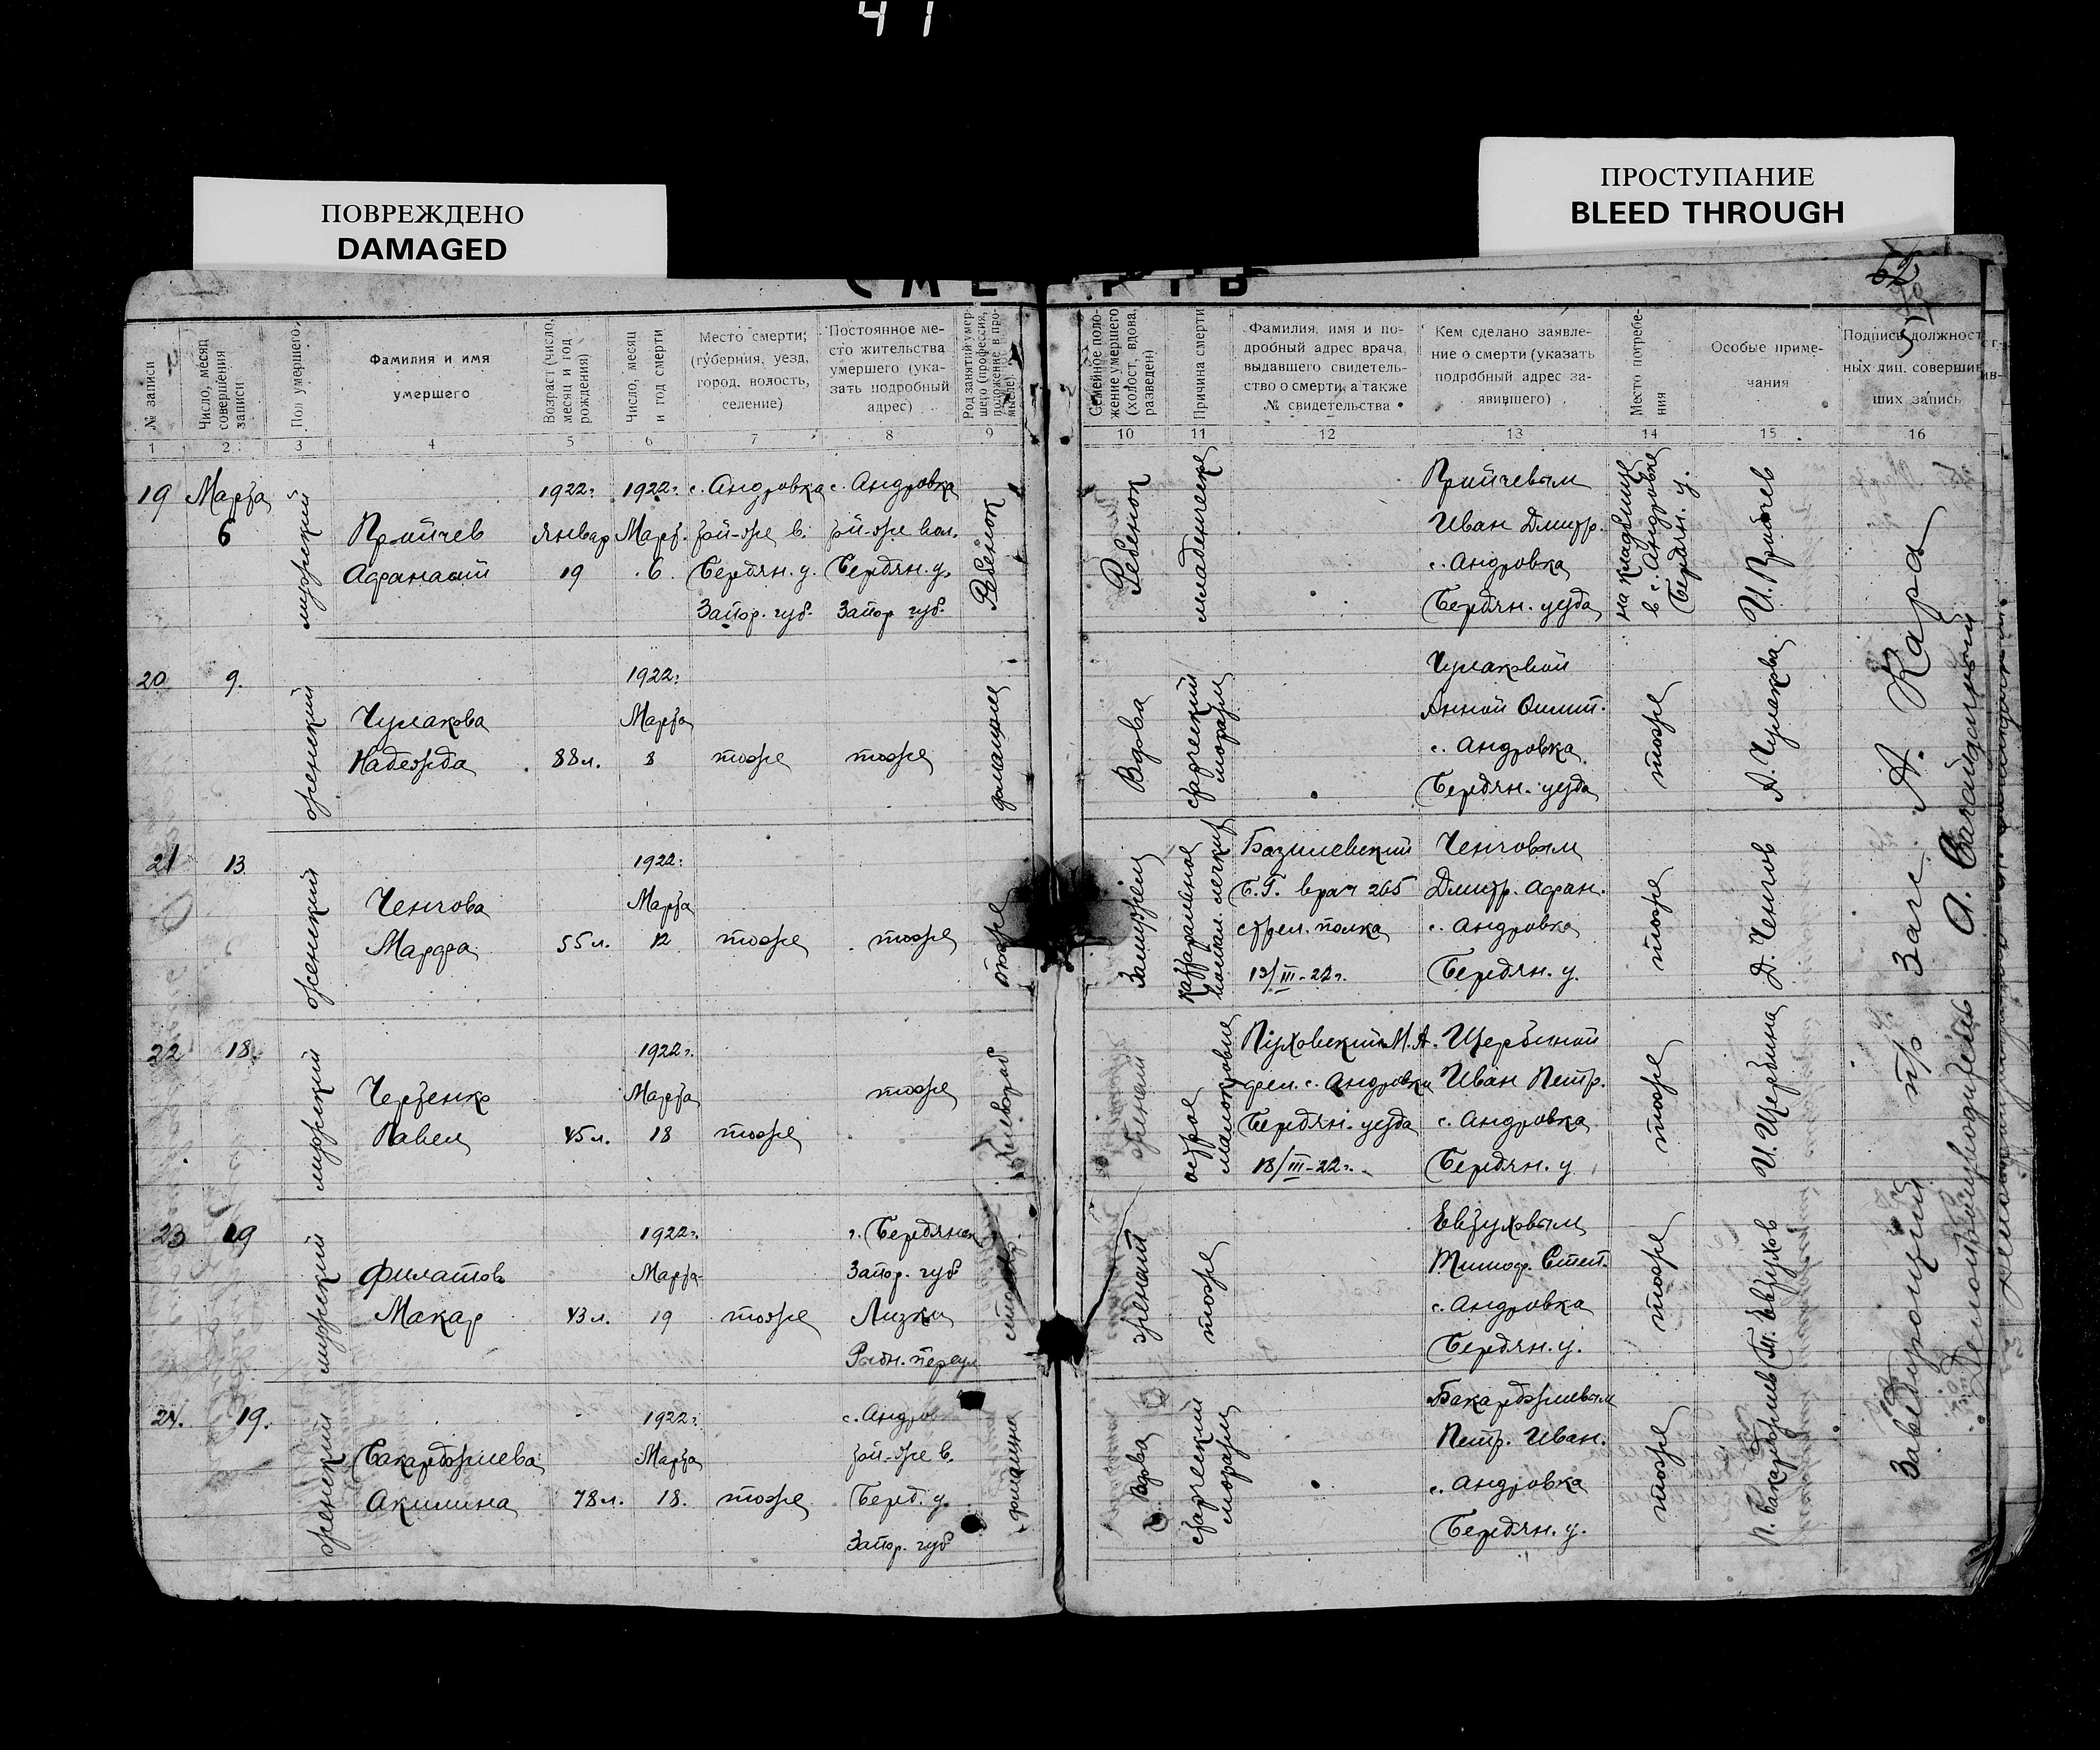 41
ПОВРЕЖДЕНО
DAMAGED
ПРОСТУПАНИЕ
BLEED THROUGH
СМЕРТЬ
№ записи
Число, месяц совершения записи
Пол умершего
Фамилия и имя
умершего
Возраст (число, месяц и год рождения)
Число, месяц и год смерти
Место смерти;
(губерния, уезд,
город, волость,
селение)
Постоянное ме-
сто жительства
умершего (ука-
зать подробный
адрес)
Род занятий умер-
шего (профессия,
положение в про-
мысле)
Семейное поло-
жение умершего
(холост, вдова,
разведен)
Причина смерти
Фамилия, имя и по-
дробный адрес врача,
выдавшего свидетель-
ство о смерти, а также
№ свидетельства
Кем сделано заявле-
ние о смерти (указать
подробный адрес за-
явившего)
Место погребе-
ния
Особые приме-
чания
Подпись должност
ных лиц, совершив
ших запись
1 2 3 4 5 6 7 8 9 10 11 12 13 14 15 16
19 Марта
6
мужский
Прийчев
Афанасий
1922 г.
Январ
19
1922 г.
Март.
6
с. Андровка
той-же в.
Бердян. у.
Запор. губ.
с. Андровка
той-же вол.
Бердян. у.
Запор. губ.
Ребенок
Ребенок
младенческ
Прийчевым
Иван Дмитр.
с. Андровка
Бердян. уезда
на кладбище
в с. Андровке
Бердян. у.
И. Прийчев
20 9.
женский
Чулакова
Надежда
88 л.
1922 г.
Марта
8
тоже
тоже
Вдова
старческий
Чулаковой
Анной
с. Андровка
Бердян. уезда
тоже
А. Чулакова
21 13
женский
Ченчова
Марфа
55 л.
1922 г.
Марта
12
тоже
тоже
тоже
Замужем
Базилевский
Б. Г. врач 265
стрел. полка
13/III-22 г.
Ченчовым
Дмитр. Афан.
с. Андровка
Бердян. у.
тоже
Д. Ченчов
22 18
мужский
Чертенко
Павел
45 л.
1922 г.
Марта
18
тоже
тоже
женат
острое
малокровие
Пуховский М. А.
с. Андровки
Бердян. уезда
18/III-22 г.
Щербиной
Иван Петр.
с. Андровка
Бердян. у
тоже
И. Щербина
23 19
мужский
Филатов
Макар
43 л.
1922 г.
Марта
19
тоже
г. Бердянск
Запор. губ
Лизки
переул
женат
тоже
Евтуховым
Тимоф. Степ.
с. Андровка
Бердян. у.
тоже
Т. Евтухов
24. 19.
женский
Бакарджиева
Акилина
78 л.
1922 г.
Марта
18.
тоже
с. Андров
той-же в.
Берд. у.
Запор. губ
Вдова
старческий
Бакарджиевым
Петр. Иван.
с. Андровка
Бердян. у.
тоже
П. Бакарджиев
Заведующий п/о Загс А. Кара
Делопроизводитель